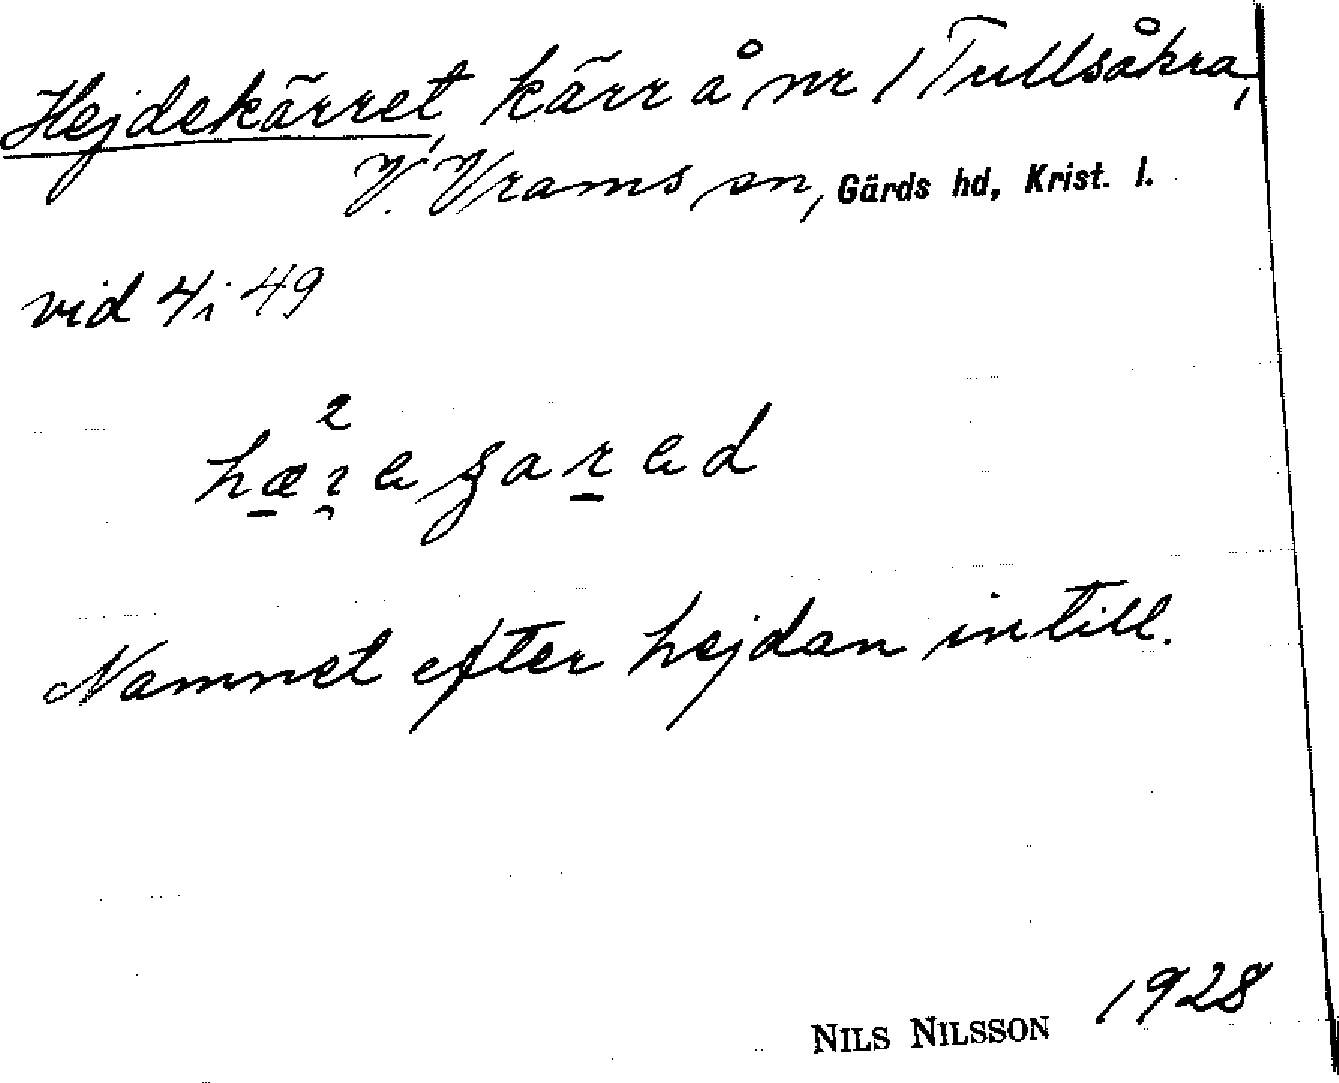 Hejdekärret, kärr å nr 1 Tullsåkra,
V. Vrams sn, Gärds hd, Krist. l.
vid 4 i 49
Namnet efter hejdan intill.
NILS NILSSON 1928